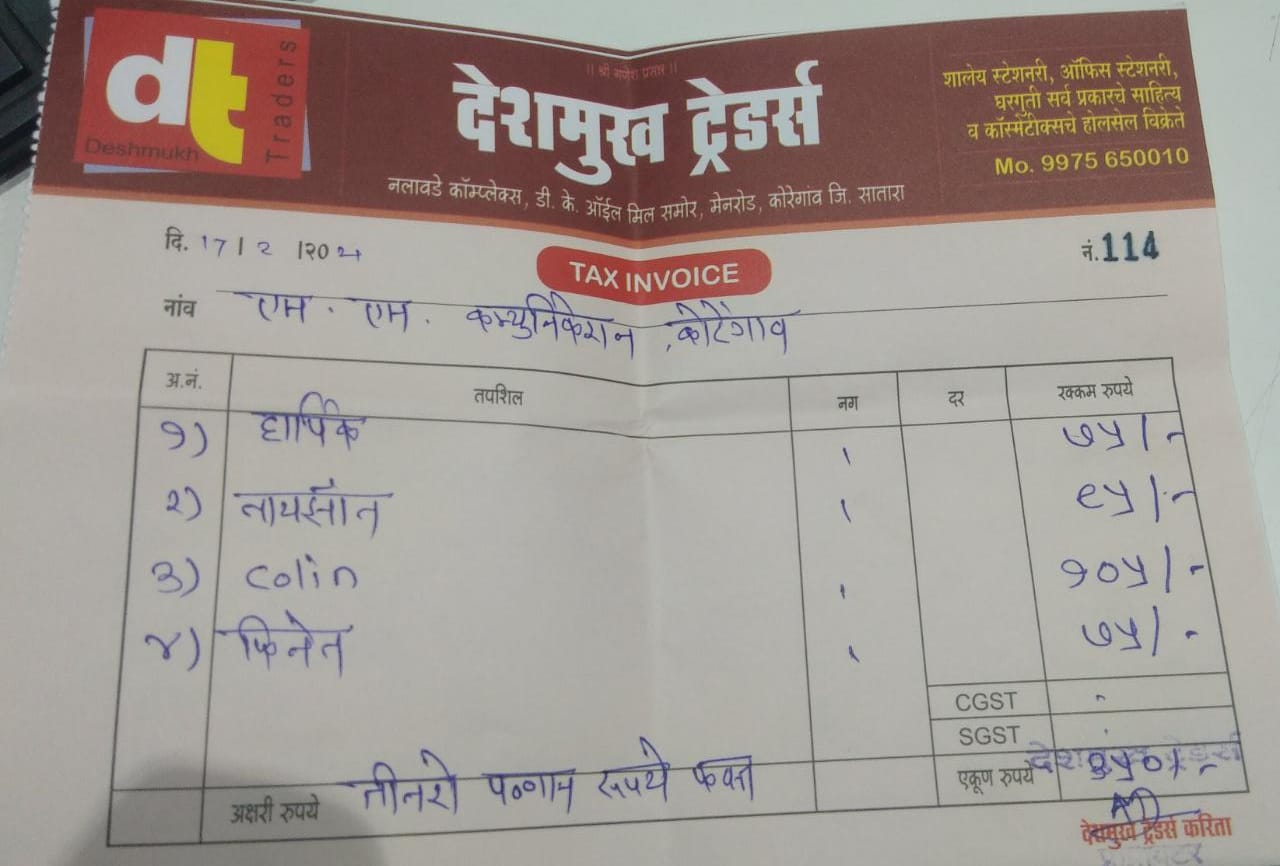 dt
Deshmukh
Traders
|| श्री गणेश प्रसन्न ||
देशमुख ट्रेडर्स
नलावडे कॉम्प्लेक्स, डी. के. ऑईल मिल समोर, मेनरोड, कोरेगांव जि. सातारा
शालेय स्टेशनरी, ऑफिस स्टेशनरी,
घरगुती सर्व प्रकारचे साहित्य
व कॉस्मेटीक्सचे होलसेल विक्रेते
Mo. 9975 650010
दि. 17 / 2 /२०२५
TAX INVOICE
नं. 114
नांव एम. एम. कम्युनिकेशन, कोरेगाव
अ.नं. तपशिल नग दर रक्कम रुपये
१) हार्पिक १ ७५/-
२) नायसॉन १ ९५/-
३) Colin १ १०५/-
४) फिनेल १ ७५/-
CGST -
SGST -
अक्षरी रुपये तीनशे पन्नास रुपये फक्त एकूण रुपये ३५०/-
देशमुख ट्रेडर्स करिता